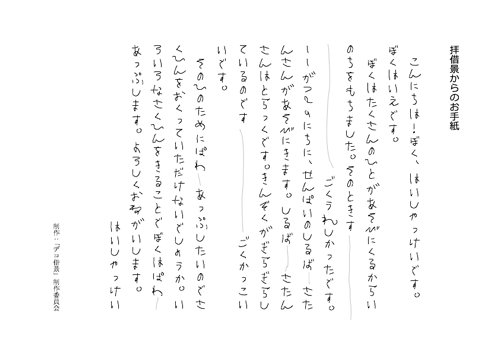 拝借景からのお手紙
こんにちは!ぼく、はいしゃっけいです。
ぼくはいえです。
ぼくはたくさんのひとがあそびにくるからい
のちをもちました。そのときすー
ーごくうれしかったです。
のにちに、せんぱいのしるばーさた
んさんがあそびにきます。しるばーさたん
さんはとらっくです。きんぞくがぎらぎらし
ているのですーごくかっこい
いです。
そのひのためにぱわーあっぷしたいのでさ
くひんをおくっていただけないでしょうか。い
ろいろなさくひんをきることでぼくはぱわー
あっぷします。よろしくおねがいします。
はいしゃっけい
制作:『デコ借景』制作委員会